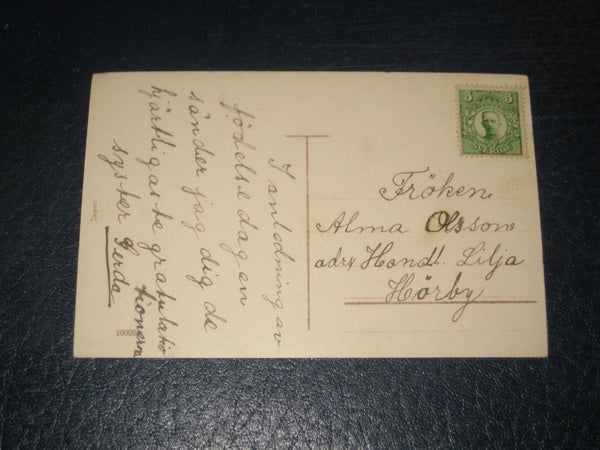 I anledning av
födelsedagen
sänder jag dig de
hjärtligaste gratulatio
tionerna
syster Gerda
5 5
SVERIGE
Fröken
Alma Olsson
adr. Handl. Lilja
Hörby